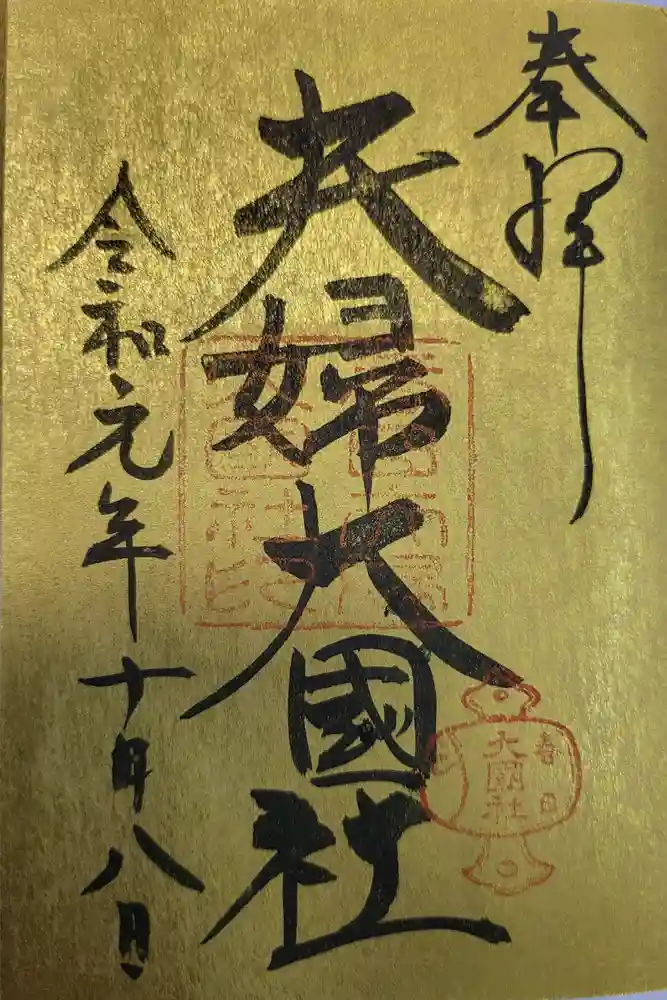 奉拝
夫婦大國社
令和元年十月八日
春日
大國社